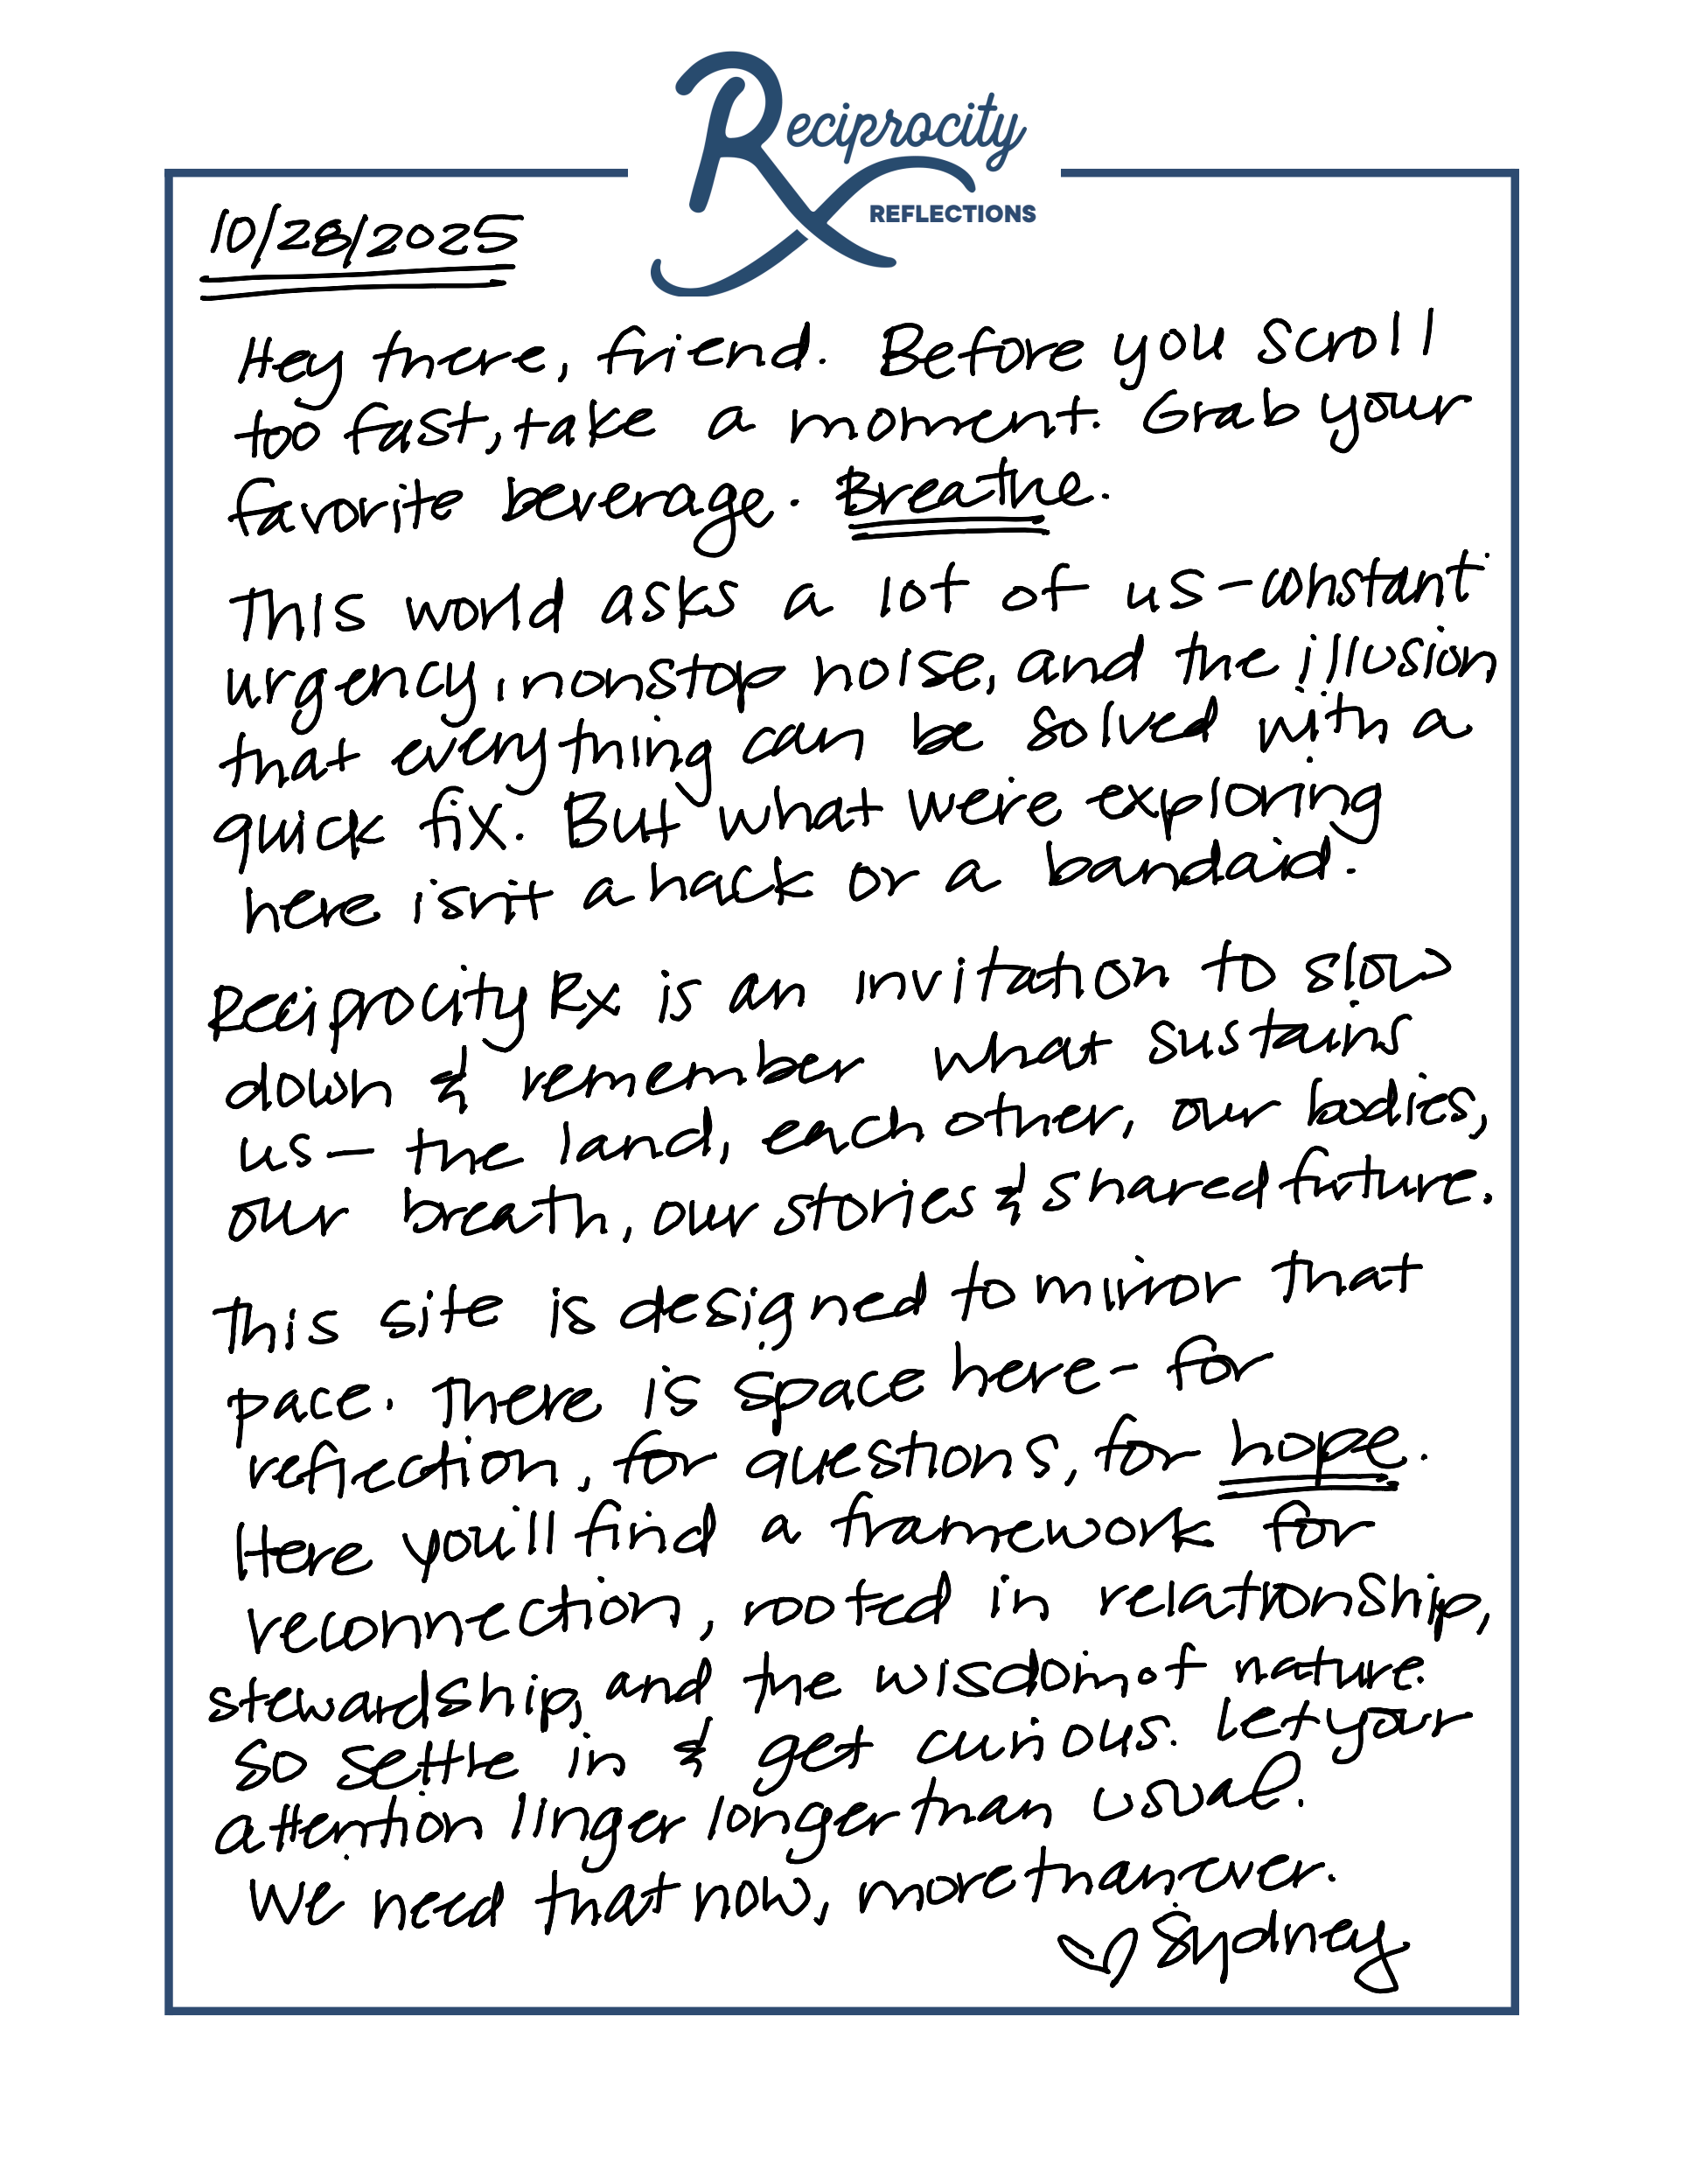 Reciprocity
REFLECTIONS
10/28/2025
Hey there, friend. Before you scroll
too fast, take a moment. Grab your
favorite beverage. Breathe.
This world asks a lot of us - constant
urgency, nonstop noise, and the illusion
that everything can be solved with a
quick fix. But what we're exploring
here isn't a hack or a bandaid.
Reciprocity Rx is an invitation to slow
down & remember what sustains
us — the land, each other, our bodies,
our breath, our stories & shared future.
This site is designed to mirror that
pace. There is space here - for
reflection, for questions, for hope.
Here you'll find a framework for
reconnection, rooted in relationship,
stewardship, and the wisdom of nature.
So settle in & get curious. Let your
attention linger longer than usual.
We need that now, more than ever.
♡ Sydney